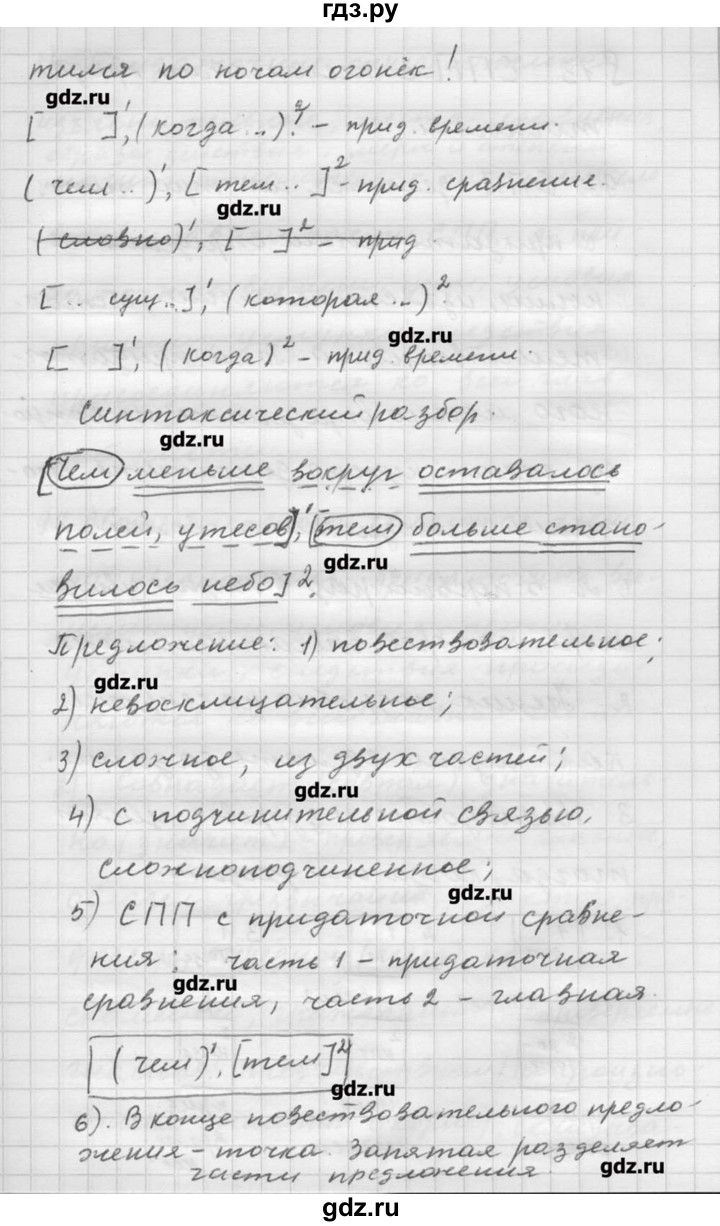 гдз.ру
тился по ночам огонёк!
gdz.ru
[ ]¹, (когда ..)²! – прид. времени.
(чем ..)¹, [тем .. ]² - прид. сравнение.
gdz.ru
(словно)¹, [ ]² – прид
[.. сущ ..]¹, (которая ..)²
gdz.ru
[ ]¹, (когда)² – прид. времени.
Синтаксический разбор.
gdz.ru
[Чем меньше вокруг оставалось
полей, утесов]¹, [тем больше стано-
gdz.ru
вилось небо]².
Предложение: 1) повествовательное;
gdz.ru
2) невосклицательное;
3) сложное, из двух частей;
gdz.ru
4) с подчинительной связью,
сложноподчиненное;
gdz.ru
5) СПП с придаточной сравне-
ния; часть 1 – придаточная
gdz.ru
сравнения, часть 2 – главная.
(чем)¹, [тем]²
gdz.ru
6). В конце повествовательного предло-
жения – точка. Запятая разделяет
части предложения
gdz.ru
gdz.ru